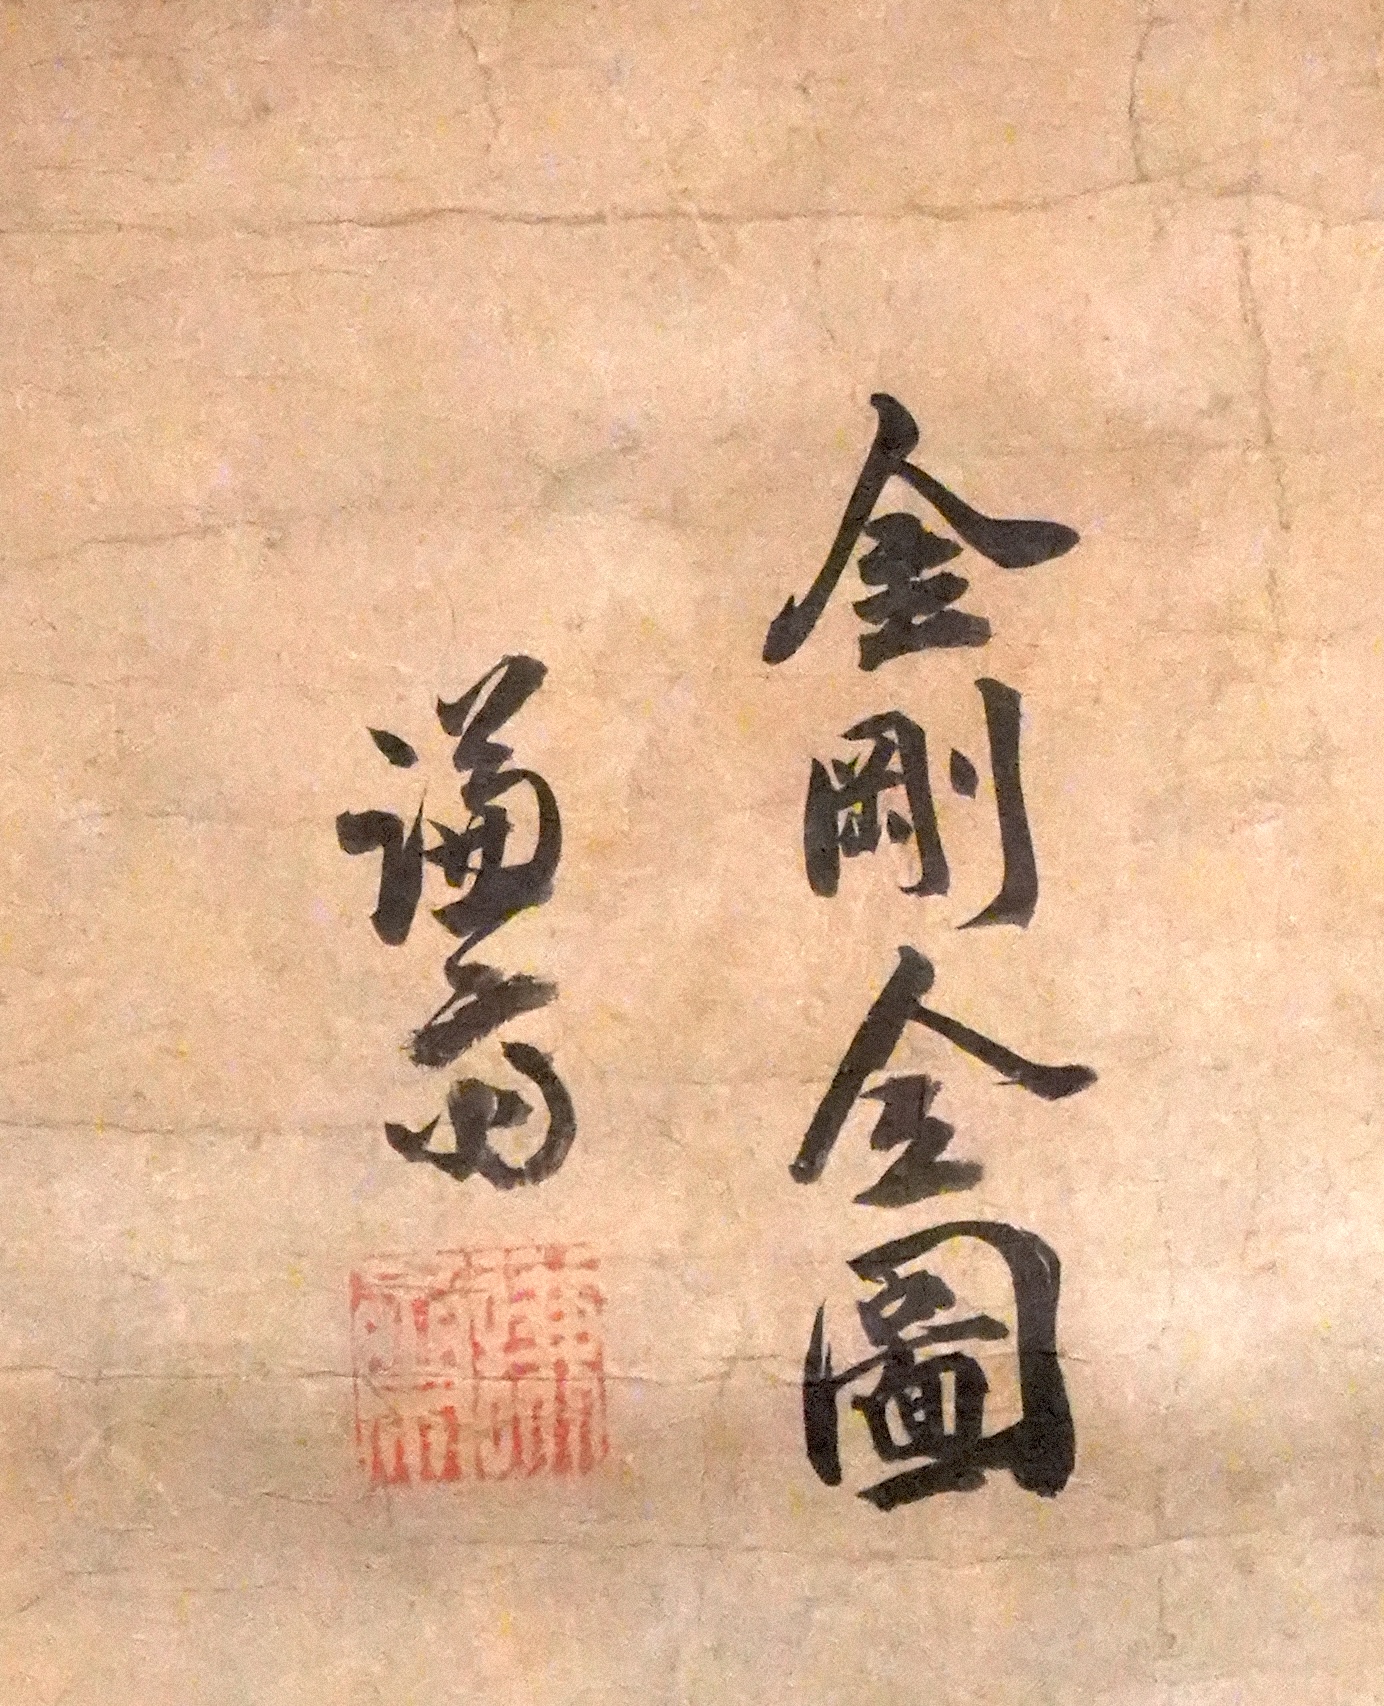 金剛全圖
謙齋